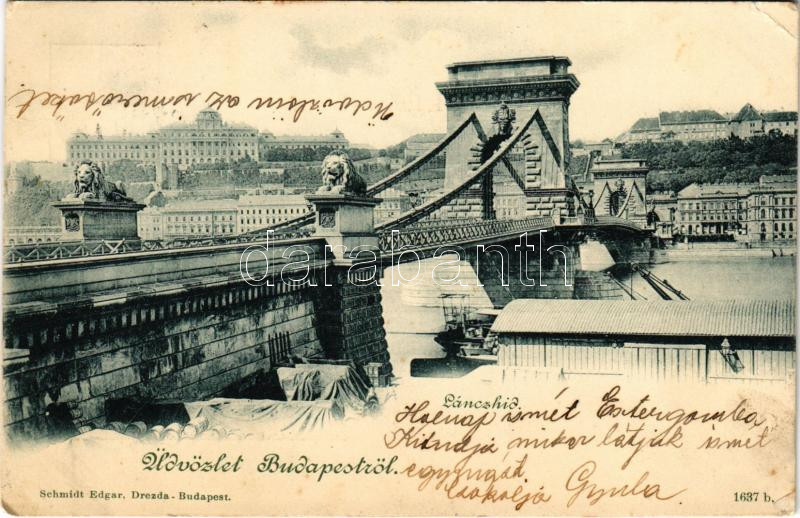 Udvözlöm az ismerősöket
darabanth
Lánczhid.
Holnap ismét Esztergomba
Ki tudja mikor látjuk ismét
egymást
Csókolja Gyula
Üdvözlet Budapestről.
Schmidt Edgar, Drezda - Budapest.
1637 b.